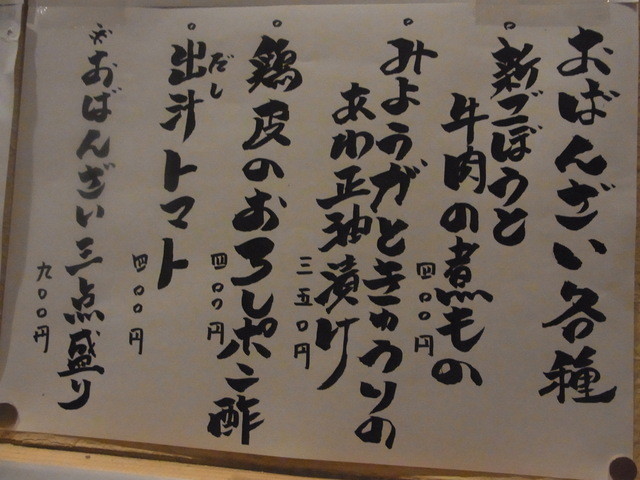 おばんざい各種
。新ごぼうと
牛肉の煮もの
四〇〇円
。みょうがときゅうりの
あわ正油漬け
三五〇円
。鶏皮のおろしポン酢
四〇〇円
。出汁トマト
だし
四〇〇円
おばんざい三点盛り
九〇〇円